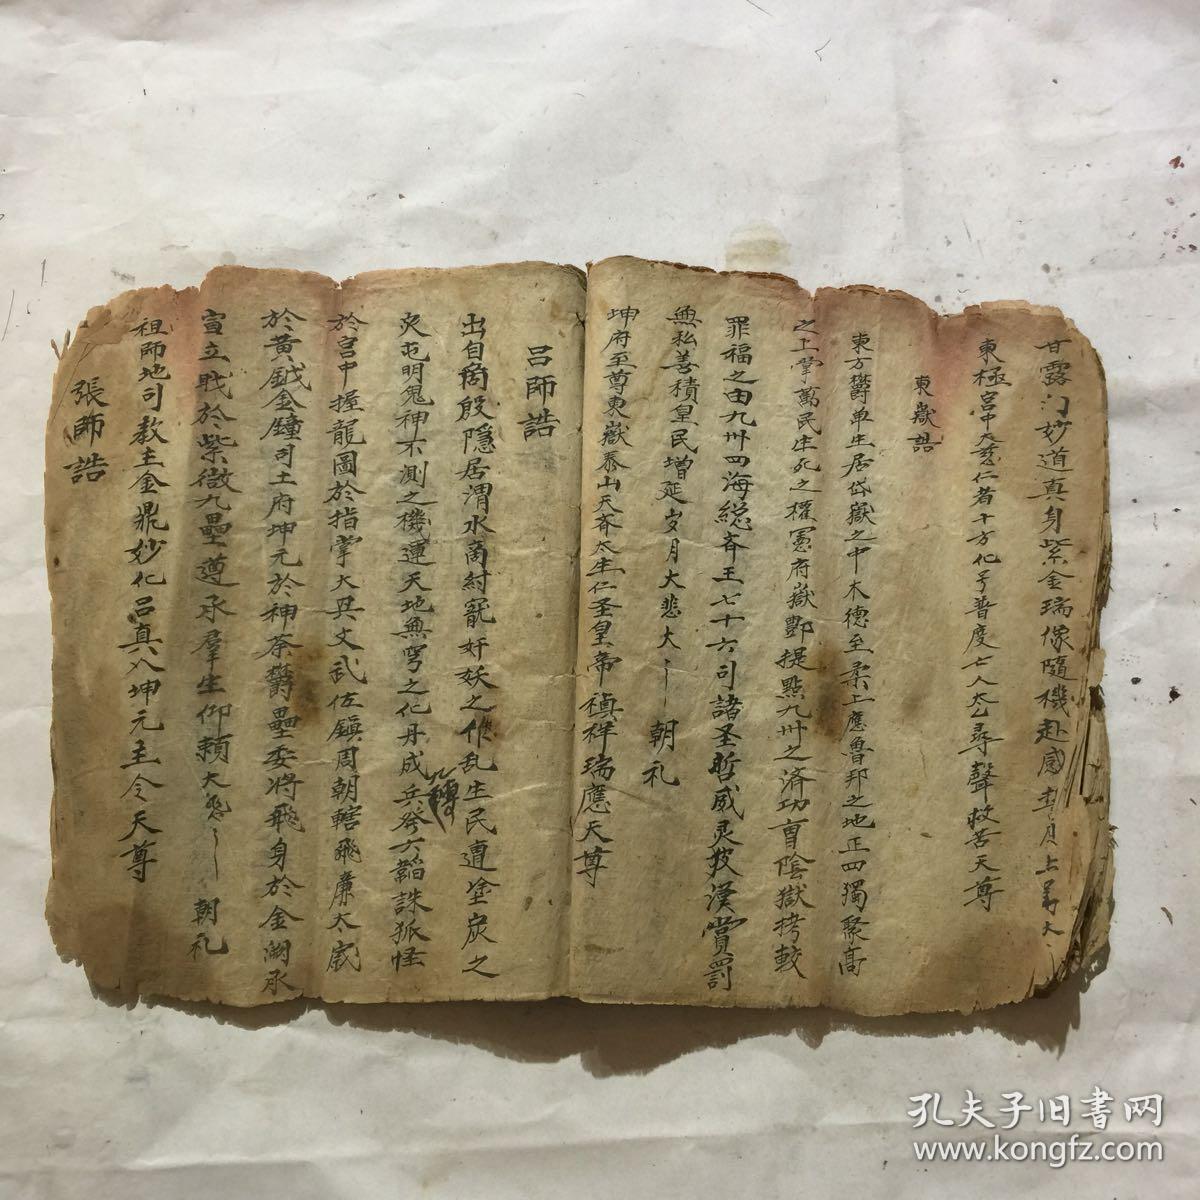 甘露門妙道真身紫金瑞像隨機赴感
東極宮中大慈仁者十方化号普度亡人太乙尋聲救苦天尊
東嶽誥
東方欝单生居岱嶽之中木德至柔上應魯邦之地正四獨聚高
之上掌萬民生死之權冥府嶽酆提點九卅之済功曺陰獄拷較
罪福之由九卅四海総斉王七十六司諸圣哲威灵賞罰
無私善積皇民增延岁月大悲大〻朝礼
坤府至尊東嶽泰山天斉大生仁圣皇帝禎祥瑞應天尊
吕師誥
出自商殷隱居渭水商紂寵奸妖之作乱生民遭塗炭之
灾屯明鬼神不測之機運天地無穹之化丹成兵發六韜誅狐怪
於宮中握龍圖於指掌大興文武佐鎮周朝轄飛廉太歲
於黃鉞金鐘司土府坤元於神荼欝壘委將飛身於金闕承
宣立戰於紫微九壘遵承羣生仰賴大悲〻朝礼
祖師地司教主金鼎妙化吕真人坤元主令天尊
張師誥
孔夫子旧書网
www.kongfz.com